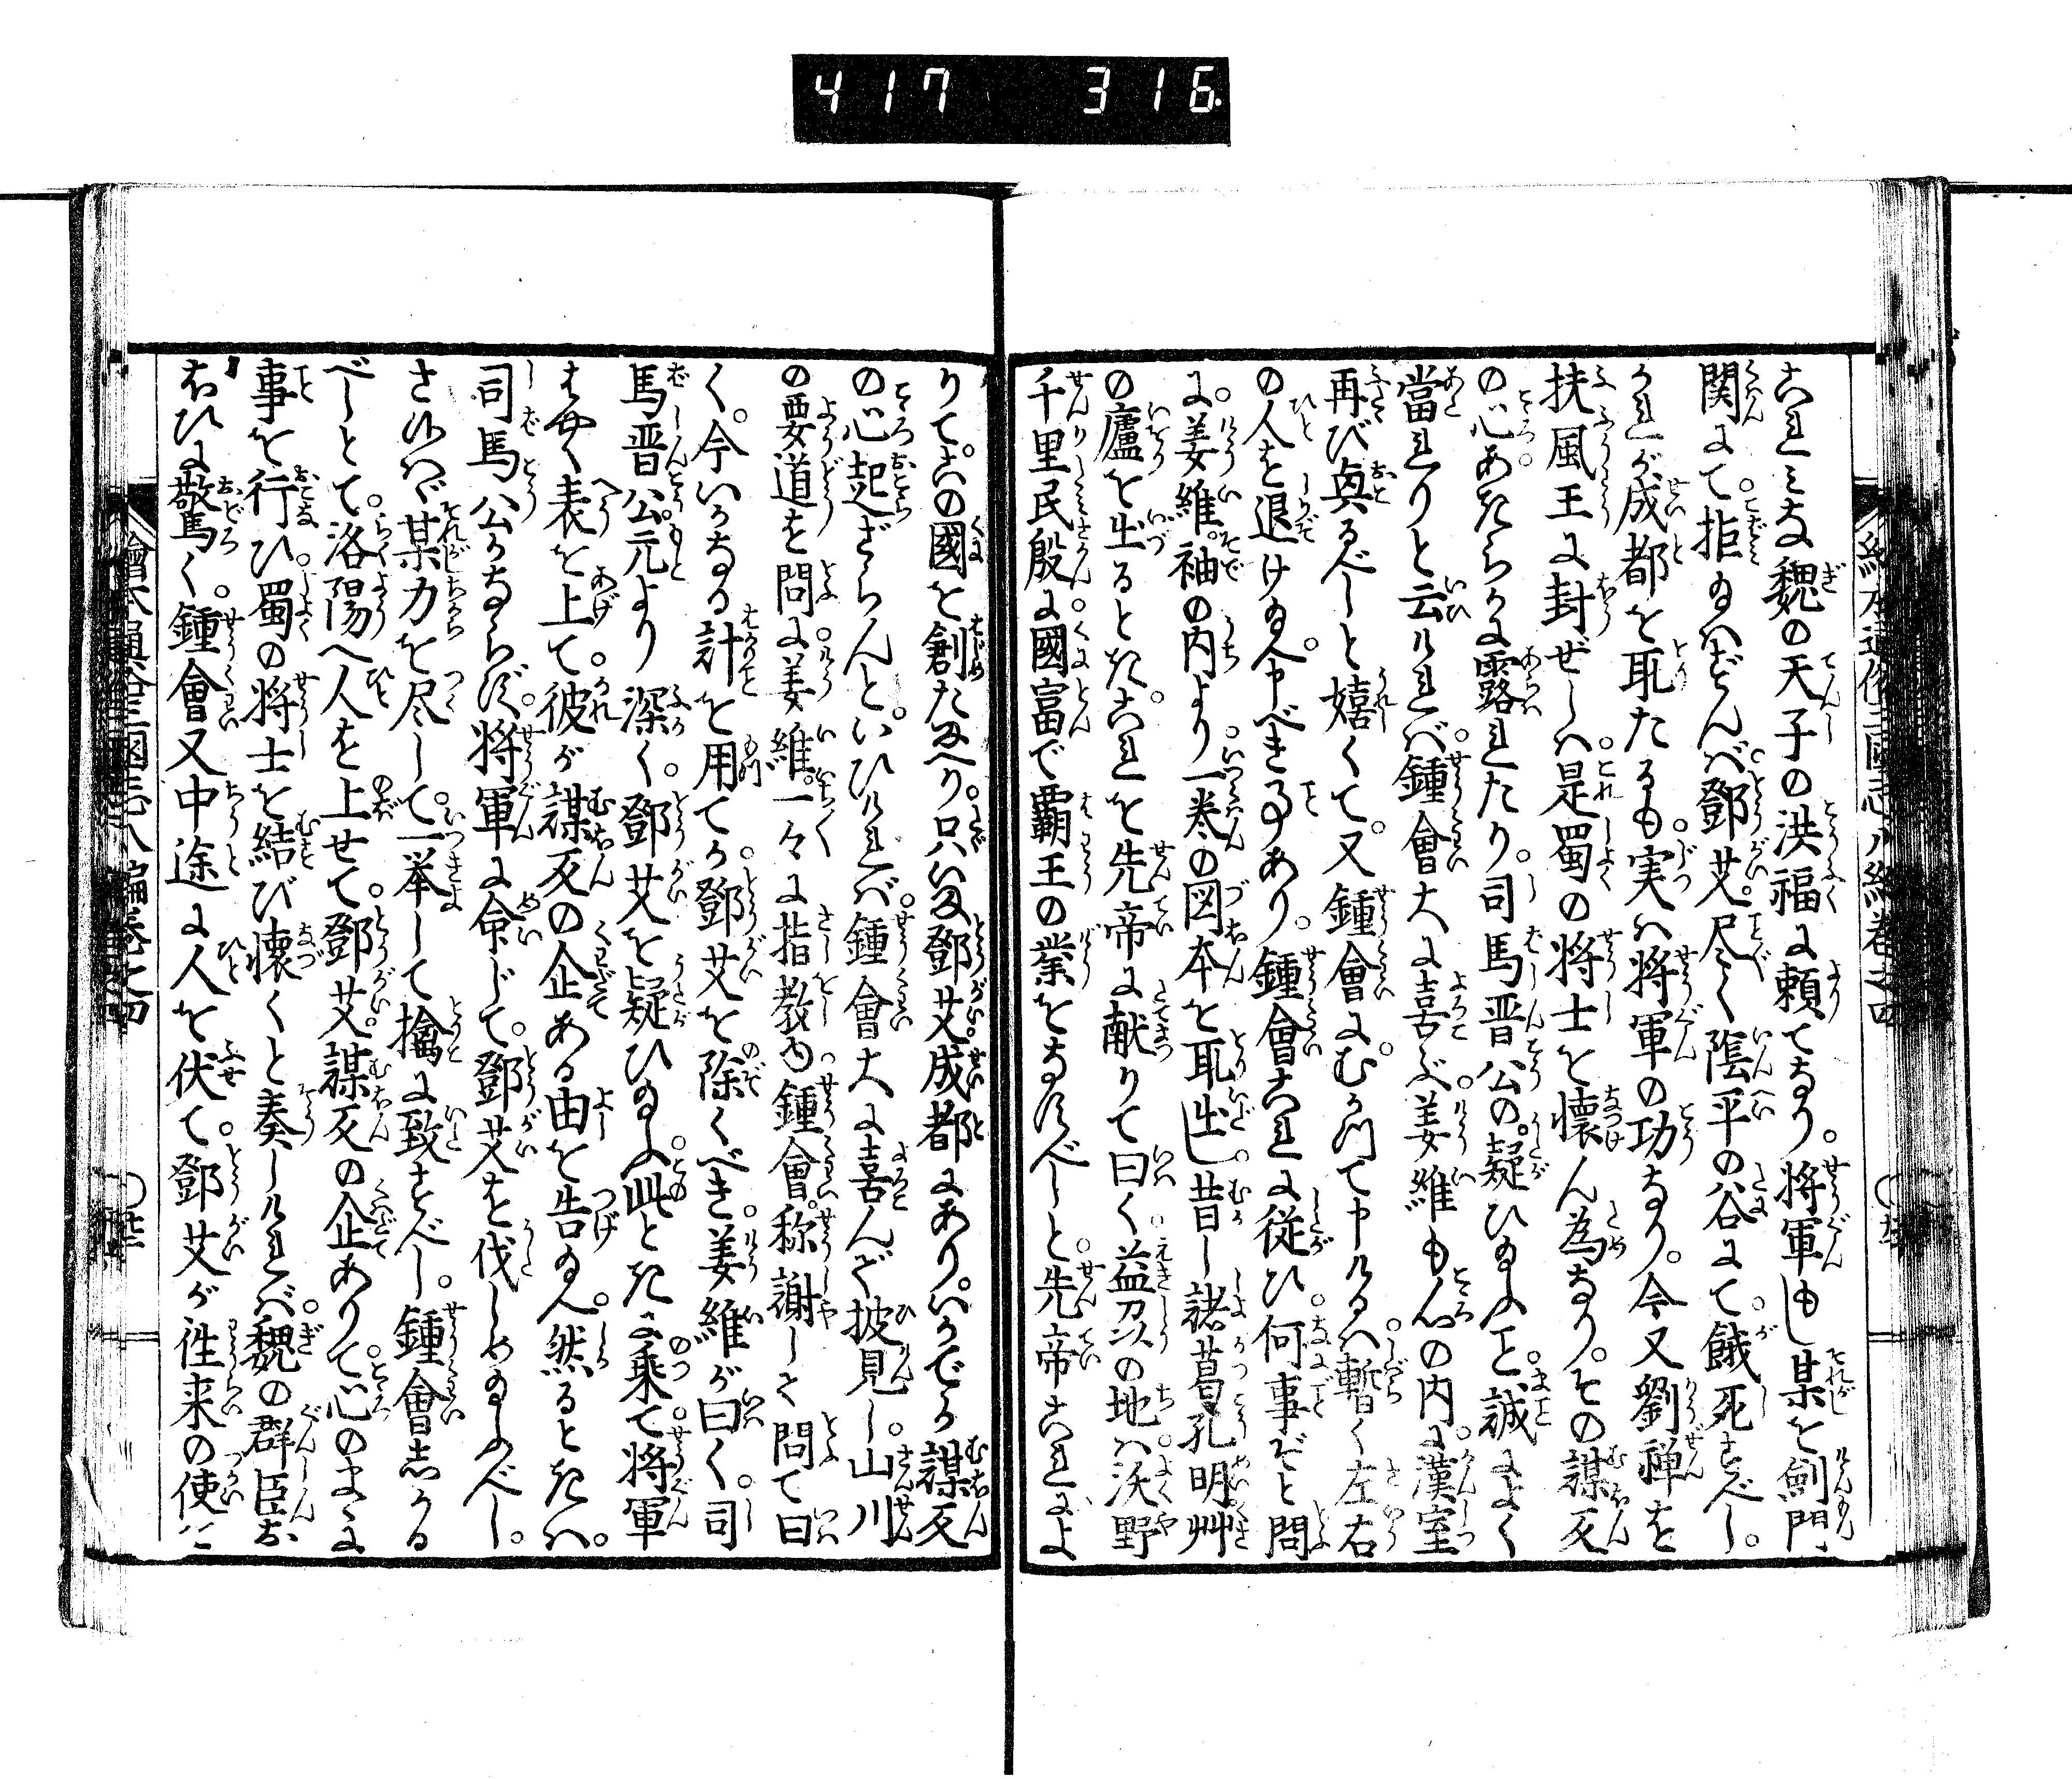 417 316
これみな魏の天子の洪福に頼てなり。将軍もし某を剣門
関にて。拒給はずんば。鄧艾。尽く陰平の谷にて。餓死すべし。
かれが成都を取たるも。実は将軍の功なり。今又劉禅を
扶風王に封ぜしは。是蜀の将士を懐ん為なり。その謀反
の心。あきらかに露れたり。司馬晋公の。疑ひ給ふこと。誠によく
當れりと云ければ。鍾會大に喜ぶ。姜維も心の内に。漢室
再び興るべしと嬉くて。又鍾會に。むかつて申けるは。暫く左右
の人を退け給へ。申べき事あり。鍾會これに従ひ。何事ぞと問
に。姜維。袖の内より。一巻の図本を取出し。昔し諸葛孔明。艸
の廬を出るとき。これを先帝に献りて曰く。益州の地は。沃野
千里民殷に。國富で覇王の業をなすべしと。先帝これによ
りて。この國を創たまへり。只いま鄧艾。成都にあり。いかでか謀反
の心起ざらんと。いひければ。鍾會大に喜んで披見し。山川
の要道を問に。姜維。一々に指教ゆ。鍾會。称謝して問て曰
く。今いかなる計を用てか。鄧艾を除くべき。姜維が曰く。司
馬晋公。元より深く。鄧艾を疑ひ給ふ。此ときに乗て。将軍
はやく表を上て。彼が謀反の企ある由を告給へ。然るときは。
司馬公かならず。将軍に命じて。鄧艾を伐しめ給ふべし。
さあらば某力を尽して。一挙して擒に致すべし。鍾會しかる
べしとて。洛陽へ人を上せて。鄧艾。謀反の企ありて。心のまゝに
事を行ひ。蜀の将士を結び懐くと奏しければ。魏の群臣お
おひに驚く。鍾會又中途に人を伏て。鄧艾が往来の使に
繪本通俗三國志八編巻之四